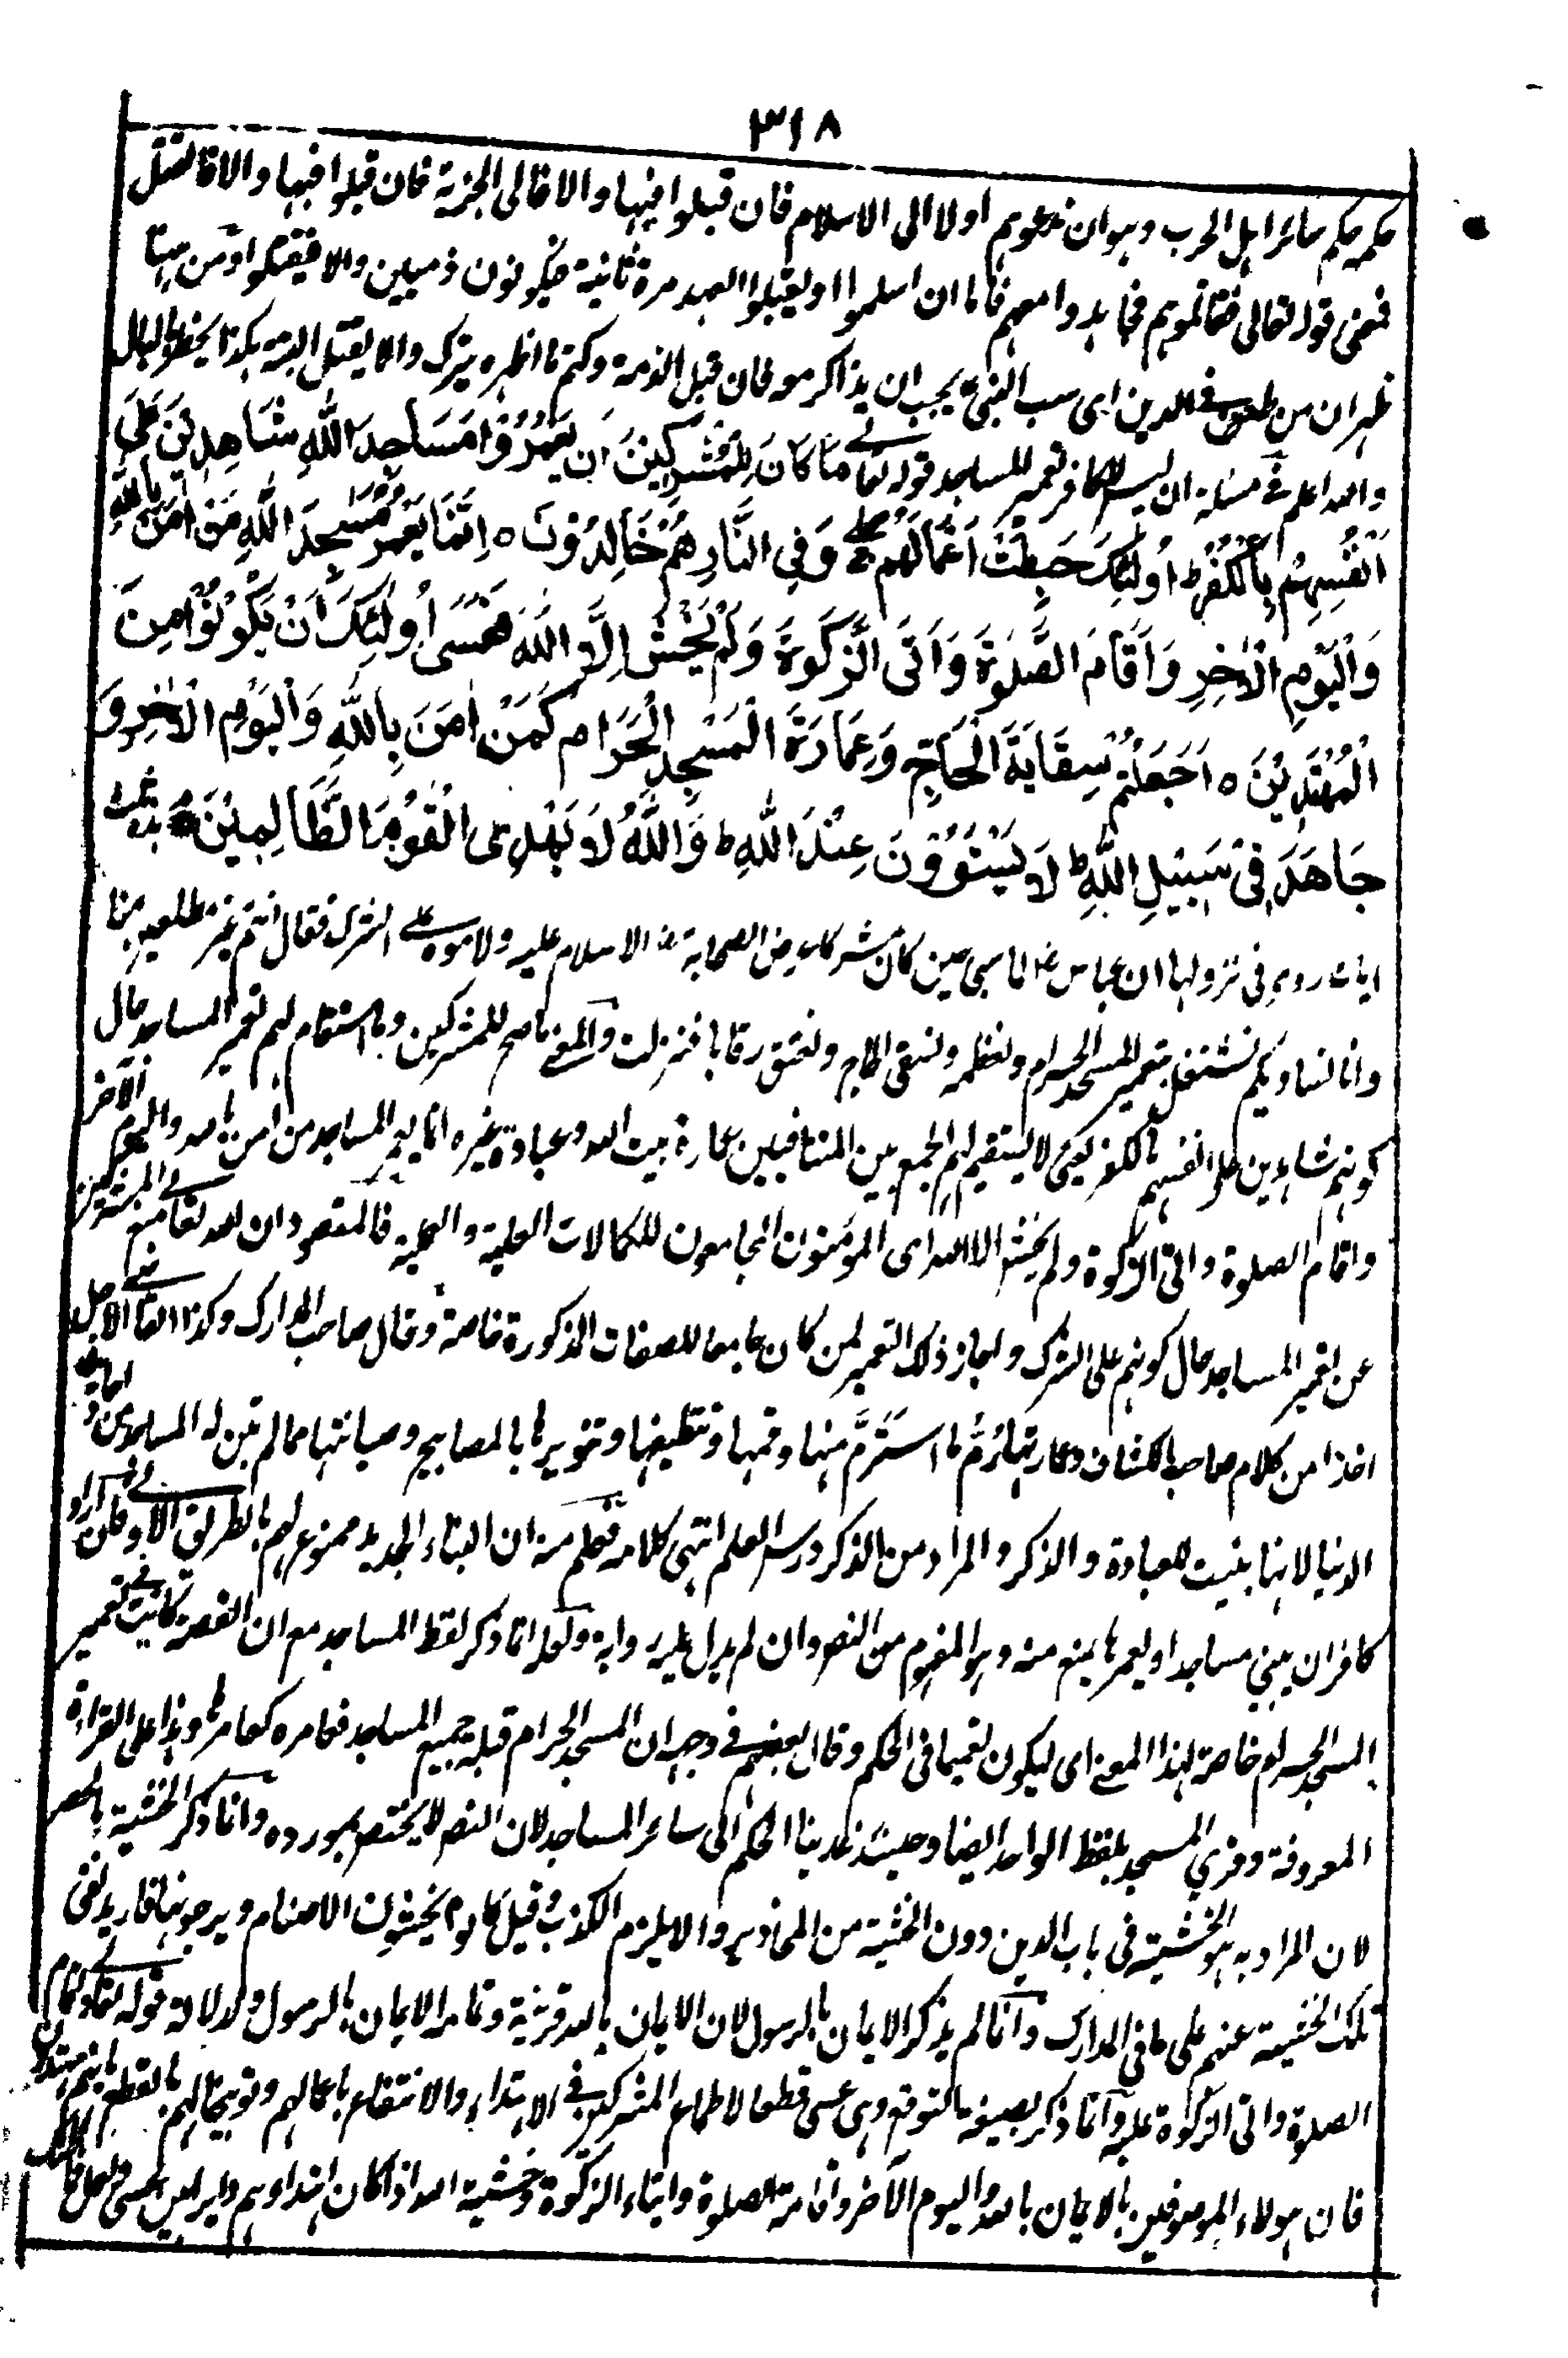 ٣١٨
حكمه حكم سائر اهل الحرب وهو ان ندعوهم اولا الى الاسلام فان قبلوا فبها والا فالى الجزية فان قبلوا فبها والا فالقتل
فمعنى قوله تعالى فقاتلوهم فجاهدوا معهم فاما ان اسلموا او يقبلوا العهد مرة ثانية فيكونون ذميين والا فيقتلوا ومن ههنا
ظهر ان من طعن في الدين اى سب النبي يجب ان يذاكر معه فان قبل الذمة وكتم ما اظهره يترك والا يقتل البتة هكذا يخطر بالبال
والله اعلم في مسئلة ان ليس للكافر تعمير المساجد قوله تعالى مَا كَانَ لِلْمُشْرِكِيْنَ اَنْ يَعْمُرُوْا مَسَاجِدَ اللهِ شَاهِدِيْنَ عَلٰى
اَنْفُسِهِمْ بِالْكُفْرِ ط اُولٰئِكَ حَبِطَتْ اَعْمَالُهُمْ وَفِى النَّارِ هُمْ خَالِدُوْنَ ه اِنَّمَا يَعْمُرُ مَسٰجِدَ اللهِ مَنْ اٰمَنَ بِاللهِ
وَالْيَوْمِ الْاٰخِرِ وَاَقَامَ الصَّلٰوةَ وَاٰتَى الزَّكٰوةَ وَلَمْ يَخْشَ اِلَّا اللهَ فَعَسٰى اُولٰئِكَ اَنْ يَكُوْنُوْا مِنَ
الْمُهْتَدِيْنَ ه اَجَعَلْتُمْ سِقَايَةَ الْحَاجِّ وَعِمَارَةَ الْمَسْجِدِ الْحَرَامِ كَمَنْ اٰمَنَ بِاللهِ وَالْيَوْمِ الْاٰخِرِ وَ
جَاهَدَ فِىْ سَبِيْلِ اللهِ ط لَا يَسْتَوُوْنَ عِنْدَ اللهِ ط وَاللهُ لَا يَهْدِى الْقَوْمَ الظَّالِمِيْنَ هذه ثلث
ايات روى فى نزولها ان عباس رض لما سبى حين كان مشركا عرض الصحابة رض الاسلام عليه ولاموه على الشرك فقال انتم غير مطلعين منا
وانا نساويكم نشتغل بتعمير المسجد الحرام ونعظمه ونسقى الحاج ونعتق رقابا فنزلت والمعنى ما صح للمشركين وما استقام لهم تعمير المساجد حال
كونهم شاهدين على انفسهم بالكفر يعنى لا يستقيم لهم الجمع بين المتنافيين عمارة بيت الله وعبادة غيره انما يعمر المساجد من امن بالله واليوم الآخر
واقام الصلوة واتى الزكوة ولم يخش الا الله اى المؤمنون الجامعون للكمالات العلمية والعملية فالمقصود ان الله تعالى منع المشركين
عن تعمير المساجد حال كونهم على الشرك واجاز ذلك التعمير لمن كان جامعا للصفات المذكورة خاصة وقال صاحب المدارك وكذا القاضي الاجل
اخذا من كلام صاحب الكشاف وعمارتها رَمُّ ما استَرَمَّ منها وقمها وتنظيفها وتنويرها بالمصابيح وصيانتها مما لم تبن له المساجد من احاديث
الدنيا لانها بنيت للعبادة والذكر والمراد من الذكر درس العلم انتهى كلامه فعلم منه ان البناء الجديد ممنوع لهم بالطريق الاولى فان اراد
كافر ان يبني مساجد او يعمرها يمنع منه وهو المفهوم من النص وان لم يدل عليه رواية ولعله انما ذكر لفظ المساجد مع ان القصة كانت في تعمير
المسجد الحرام خاصة لهذا المعنى اى ليكون تعميما فى الحكم وقال بعضهم في وجهه ان المسجد الحرام قبلة جميع المساجد فعامره كعامرها وهذا على القراءة
المعروفة وقرئ المسجد بلفظ الواحد ايضا وحينئذ عدينا الحكم الى سائر المساجد لان النص لا يختص بمورده وانما ذكر الخشية بالحصر
لان المراد به هو الخشية فى باب الدين دون الخشية من المحاذير والا يلزم الكذب وقيل كانوا يخشون الاصنام ويرجونها فاريد نفى
تلك الخشية عنهم على ما فى المدارك وانما لم يذكر الايمان بالرسول لان الايمان بالله قرينة وتمامه الايمان بالرسول ولدلالة قوله تعالى واقام
الصلوة واتى الزكوة عليه وانما ذكر بصيغة التوقع وهى عسى قطعا لاطماع المشركين في الاهتداء والانتفاع باعمالهم وتوبيخا لهم بالقطع بانهم مهتدون
فان هؤلاء الموصوفين بالايمان بالله واليوم الآخر واقامة الصلوة وايتاء الزكوة وخشية الله اذا كان اهتداؤهم دايرا بين عسى ولعل فما ظنك